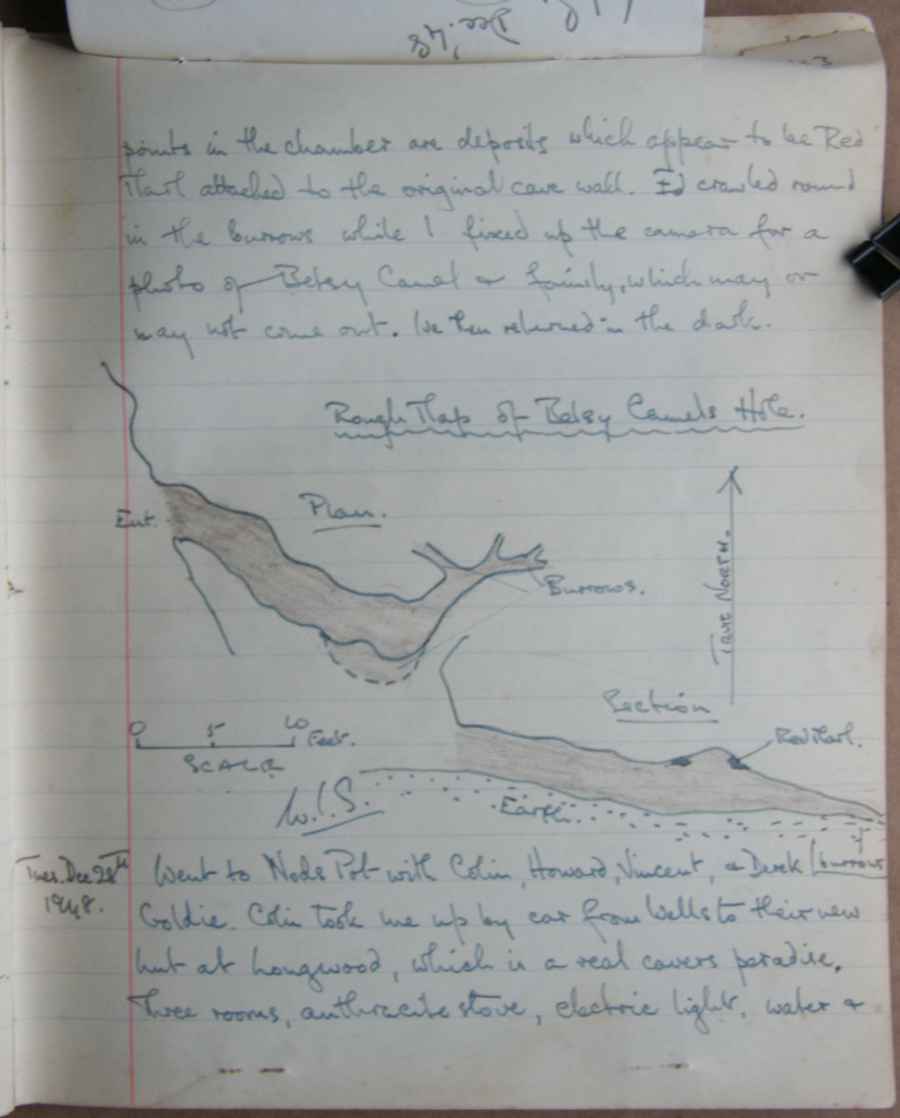 Dec. 48
points in the chamber are deposits which appear to be Red
Marl attached to the original cave wall. Ed crawled round
in the burrows while I fixed up the camera for a
photo of Betsy Camel & family, which may or
may not come out. We then returned in the dark.
Rough Map of Betsy Camels Hole.
Plan.
Ent.
Burrows.
TRUE NORTH.
Section
0 5 10 Feet.
SCALE
Red Marl.
W.I.S.
Earth.
burrows
Tues. Dec 28th
1948.
Went to Nods Pot with Colin, Howard, Vincent, & Derek
Goldie. Colin took me up by car from Wells to their new
hut at Longwood, which is a real cavers paradise.
Three rooms, anthracite stove, electric light, water &